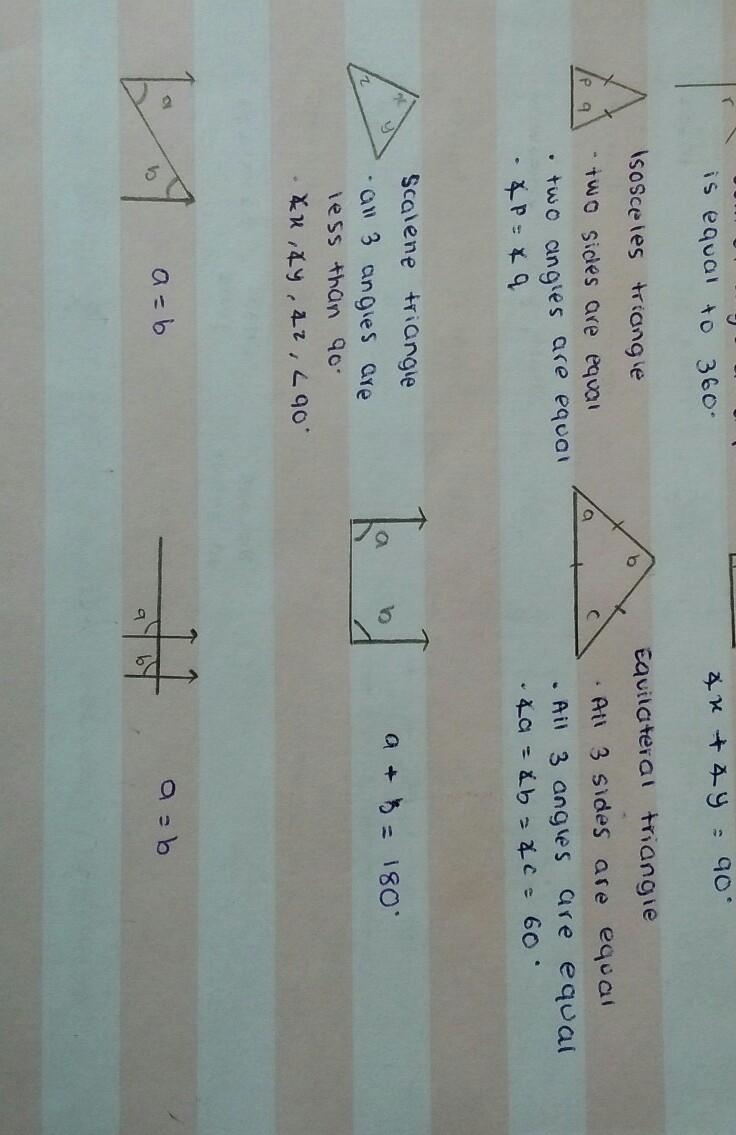 r
is equal to 360°
∡x + ∡y = 90°
Isosceles triangle
• two sides are equal
• two angles are equal
• ∡p = ∡q
p q
Equilateral triangle
• All 3 sides are equal
• All 3 angles are equal
• ∡a = ∡b = ∡c = 60°
a b c
Scalene triangle
• all 3 angles are
less than 90°
• ∡x, ∡y, ∡z, < 90°
x y z
a b
a + b = 180°
a b
a = b
a b
a = b